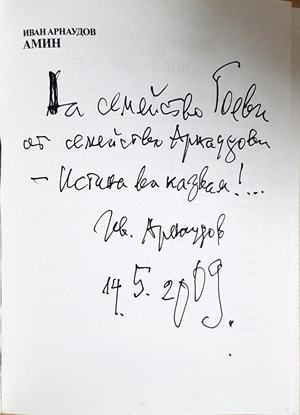 ИВАН АРНАУДОВ
АМИН
На семейство Гоеви
от семейство Арнаудови
– Истина ви казвам!...
Ив. Арнаудов
14.5.2009.